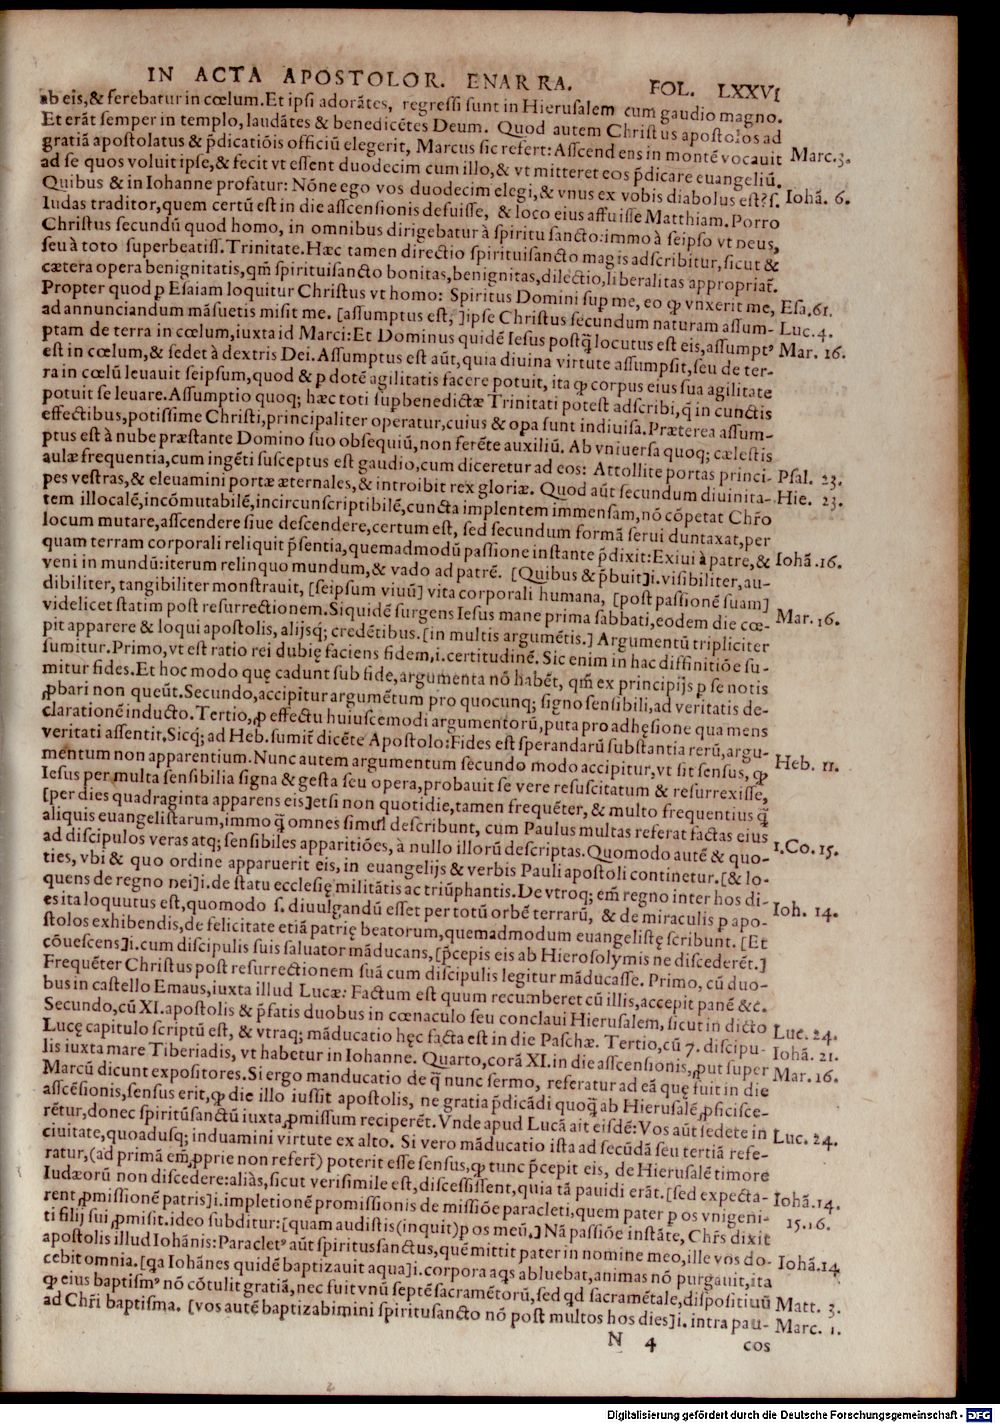 IN ACTA APOSTOLOR. ENARRA. FOL. LXXVI
ab eis,& ferebatur in cœlum.Et ipsi adorãtes, regressi sunt in Hierusalem cum gaudio magno.
Et erãt semper in templo, laudãtes & benedicẽtes Deum. Quod autem Christus apostolos ad
gratiã apostolatus & p̃dicatiõis officiũ elegerit, Marcus sic refert: Asscendens in montẽ vocauit Marc.3.
ad se quos voluit ipse,& fecit vt essent duodecim cum illo,& vt mitteret eos p̃dicare euangeliũ.
Quibus & in Iohanne profatur: Nõne ego vos duodecim elegi,& vnus ex vobis diabolus est?s. Iohã. 6.
Iudas traditor,quem certũ est in die asscensionis defuisse, & loco eius affuisse Matthiam. Porro
Christus secundũ quod homo, in omnibus dirigebatur à spiritu sancto:immo à seipso vt deus,
seu à toto superbeatiss. Trinitate. Hæc tamen directio spirituisancto magis adscribitur, sicut &
cætera opera benignitatis,qm̃ spirituisancto bonitas,benignitas,dilectio,liberalitas appropriat̃.
Propter quod p Esaiam loquitur Christus vt homo: Spiritus Domini sup me, eo ꝙ vnxerit me, Esa.61.
ad annunciandum mãsuetis misit me. [assumptus est, ]ipse Christus secundum naturam assum- Luc.4.
ptam de terra in cœlum,iuxta id Marci:Et Dominus quidẽ Iesus postq̃ locutus est eis,assumptꝰ Mar. 16.
est in cœlum,& sedet à dextris Dei. Assumptus est aũt,quia diuina virtute assumpsit,seu de ter-
ra in cœlũ leuauit seipsum,quod & p dotẽ agilitatis facere potuit, ita ꝙ corpus eius sua agilitate
potuit se leuare.Assumptio quoq; hæc toti supbenedictæ Trinitati potest adscribi,q̃ in cunctis
effectibus,potissime Christi,principaliter operatur,cuius & opa sunt indiuisa.Præterea assum-
ptus est à nube præstante Domino suo obsequiũ,non ferẽte auxiliũ. Ab vniuersa quoq; cælestis
aulæ frequentia,cum ingẽti susceptus est gaudio,cum diceretur ad eos: Attollite portas princi- Psal. 23.
pes vestras,& eleuamini portæ æternales,& introibit rex gloriæ. Quod aũt secundum diuinita- Hie. 23.
tem illocalẽ,incõmutabilẽ,incircunscriptibilẽ,cuncta implentem immensam,nõ cõpetat Chr̃o
locum mutare,asscendere siue descendere,certum est, sed secundum formã serui duntaxat,per
quam terram corporali reliquit p̃sentia,quemadmodũ passione instante p̃dixit:Exiui à patre,& Iohã.16.
veni in mundũ:iterum relinquo mundum,& vado ad patrẽ. [Quibus & p̃buit]i.visibiliter,au-
dibiliter, tangibiliter monstrauit, [seipsum viuũ] vita corporali humana, [post passionẽ suam]
videlicet statim post resurrectionem.Siquidẽ surgens Iesus mane prima sabbati,eodem die cœ- Mar.16.
pit apparere & loqui apostolis, alijsq; credẽtibus.[in multis argumẽtis.] Argumentũ tripliciter
sumitur.Primo,vt est ratio rei dubię faciens fidem,i.certitudinẽ. Sic enim in hac diffinitiõe su-
mitur fides.Et hoc modo quę cadunt sub fide,argumenta nõ habẽt, qm̃ ex principijs p se notis
ꝓbari non queũt.Secundo,accipitur argumẽtum pro quocunq; signo sensibili,ad veritatis de-
clarationẽ inducto.Tertio,ꝓ effectu huiuscemodi argumentorũ,puta pro adhęsione qua mens
veritati assentit.Sicq; ad Heb.sumit̃ dicẽte Apostolo:Fides est sperandarũ substantia rerũ,argu-
mentum non apparentium.Nunc autem argumentum secundo modo accipitur,vt sit sensus, ꝙ Heb. 11.
Iesus per multa sensibilia signa & gesta seu opera,probauit se vere resuscitatum & resurrexisse,
[per dies quadraginta apparens eis]etsi non quotidie,tamen frequẽter,& multo frequentius q̃
aliquis euangelistarum,immo q̃ omnes simul describunt, cum Paulus multas referat factas eius
ad discipulos veras atq; sensibiles apparitiões, à nullo illorũ descriptas.Quomodo autẽ & quo- 1.Co.15.
ties, vbi & quo ordine apparuerit eis, in euangelijs & verbis Pauli apostoli continetur.[& lo-
quens de regno dei]i.de statu ecclesię militãtis ac triũphantis.De vtroq; em̃ regno inter hos di-
es ita loquutus est,quomodo s. diuulgandũ esset per totũ orbẽ terrarũ, & de miraculis p apo- Ioh. 14.
stolos exhibendis,de felicitate etiã patrię beatorum,quemadmodum euangelistę scribunt. [Et
cõuescens]i.cum discipulis suis saluator mãducans,[p̃cepis eis ab Hierosolymis ne discederẽt.]
Frequẽter Christus post resurrectionem suã cum discipulis legitur mãducasse. Primo, cũ duo-
bus in castello Emaus,iuxta illud Lucæ: Factum est quum recumberet cũ illis,accepit panẽ &c.
Secundo,cũ XI.apostolis & p̃fatis duobus in cœnaculo seu conclaui Hierusalem,sicut in dicto Luc. 24.
Lucę capitulo scriptũ est, & vtraq; mãducatio hęc facta est in die Paschæ. Tertio,cũ 7. discipu- Iohã. 21.
lis iuxta mare Tiberiadis, vt habetur in Iohanne. Quarto,corã XI.in die asscensionis,ꝓut super Mar. 16.
Marcũ dicunt expositores.Si ergo manducatio de q̃ nunc sermo, referatur ad eã quę fuit in die
asscẽsionis,sensus erit,ꝙ die illo iussit apostolis, ne gratia p̃dicãdi quoq̃ ab Hierusalẽ ꝓficisce-
rẽtur,donec spiritũsanctũ iuxta ꝓmissum reciperẽt.Vnde apud Lucã ait eisdẽ: Vos aũt sedete in Luc. 24.
ciuitate,quoadusq; induamini virtute ex alto. Si vero mãducatio ista ad secũdã seu tertiã refe-
ratur,(ad primã em̃ ꝓprie non refert̃) poterit esse sensus,ꝙ tunc p̃cepit eis, de Hierusalẽ timore
Iudæorũ non discedere:aliàs,sicut verisimile est,discessissent,quia tã pauidi erãt. [sed expecta- Iohã.14.
rent ꝓmissionẽ patris]i.impletionẽ promissionis de missiõe paracleti,quem pater p os vnigeni- 15.16.
ti filij sui ꝓmisit.ideo subditur:[quam audistis(inquit)p os meũ.] Nã passiõe instãte, Chr̃s dixit
apostolis illud Iohãnis:Paracletꝰ aũt spiritussanctus,quẽ mittit pater in nomine meo,ille vos do- Iohã.14
cebit omnia.[qa Iohãnes quidẽ baptizauit aqua]i.corpora aqs abluebat,animas nõ purgauit,ita
ꝙ eius baptismꝰ nõ cõtulit gratiã,nec fuit vnũ septẽ sacramẽtorũ,sed qd sacramẽtale,dispositiuũ Matt. 3.
ad Chr̃i baptisma. [vos autẽ baptizabimini spiritusancto nõ post multos hos dies]i. intra pau- Marc. 1.
N 4 cos
Digitalisierung gefördert durch die Deutsche Forschungsgemeinschaft - DFG